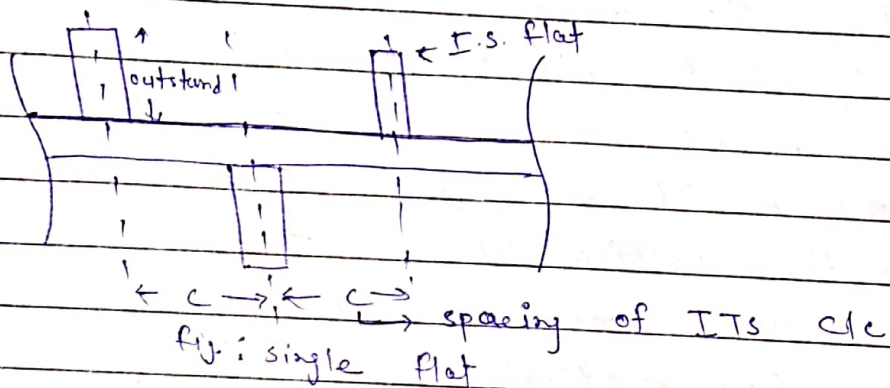 ← I.S. flat
outstand
← c → ← c →
↳ spacing of ITs c/c
fig. : single flat